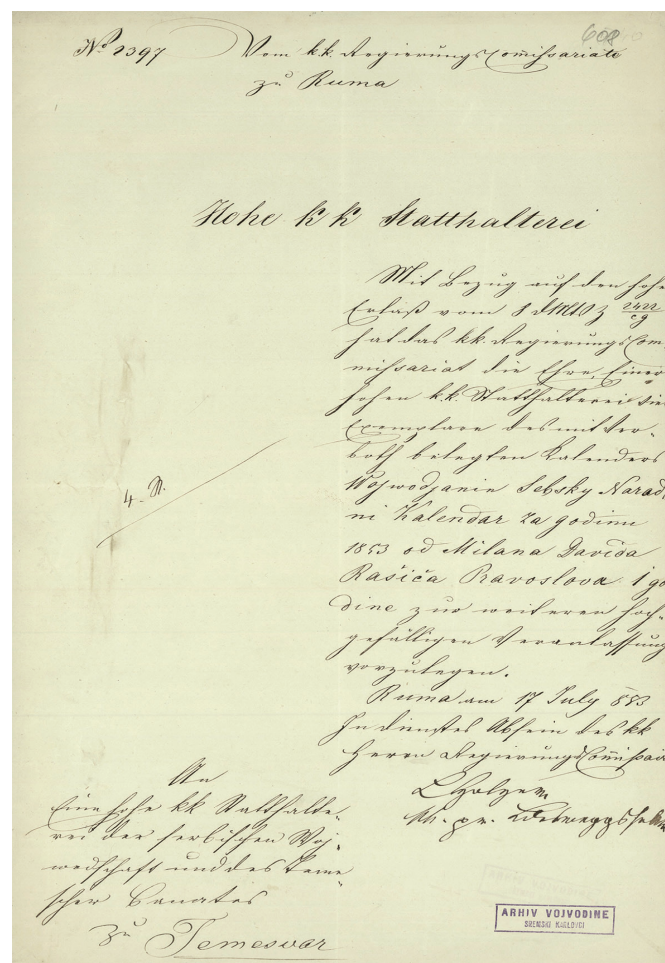 608
No 2397 Vom k.k. Regierungs Comissariate
zu Ruma
Hohe k k Statthalterei
Mit Bezug auf den hohe
Erlaß vom 8 d Mts Z 2422
hat das k.k. Regierungs Com
missariat die Ehre, Einer
hohen k.k. Statthalterei vier
Exemplare des mit Ver-
both belegten Kalenders
Wojwodjanin Sebsky Narad
ni Kalendar za godinu
1853 od Milana Davida
Rašiča Pravoslova 1 go
dine zur weiteren hoch-
gefälligen Veranlassung
vorzulegen.
4. St.
Ruma am 17 July 853
In dienstes Absein des kk
Herrn Regierungs Comissair
An
Eine hohe kk Statthalte-
rei der serbischen Woj-
wodschaft und des Teme-
scher Banates
zu Temesvar
ARHIV VOJVODINE
SREMSKI KARLOVCI